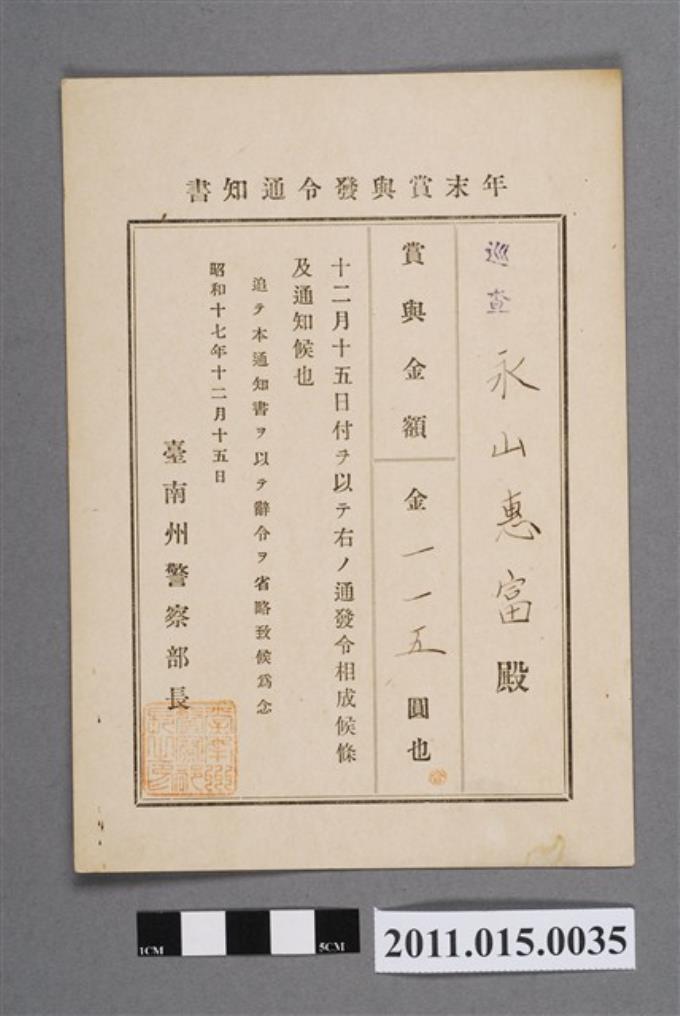 年末賞與發令通知書
巡査 永山惠富殿
賞與金額 金一一五圓也
十二月十五日付ヲ以テ右ノ通發令相成候條
及通知候也
追テ本通知書ヲ以テ辭令ヲ省略致候爲念
昭和十七年十二月十五日
臺南州警察部長
1CM 5CM
2011.015.0035